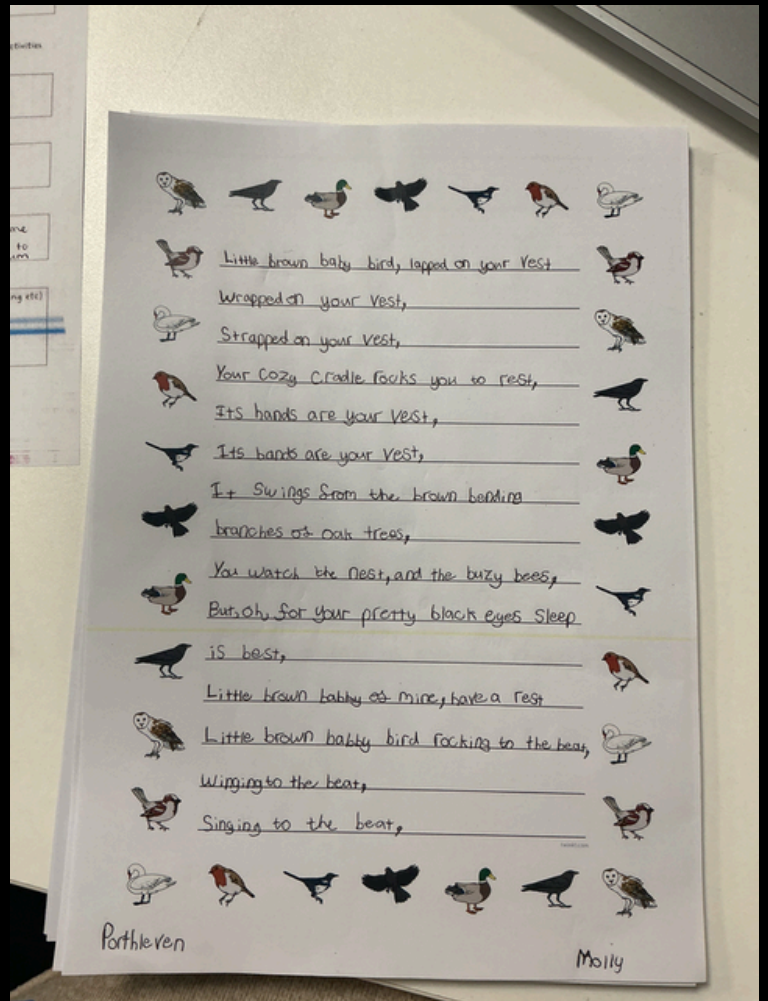 ctivities
me
to
um
ng etc)
Little brown baby bird, lapped on your vest
Wrapped on your vest,
Strapped on your vest,
Your cozy cradle rocks you to rest,
Its hands are your vest,
Its hands are your vest,
It swings from the brown bending
branches of oak trees,
You watch the nest, and the buzy bees,
But, oh, for your pretty black eyes sleep
is best,
Little brown babby of mine, have a rest
Little brown babby bird rocking to the beat,
Winging to the beat,
Singing to the beat,
Porthleven
Molly